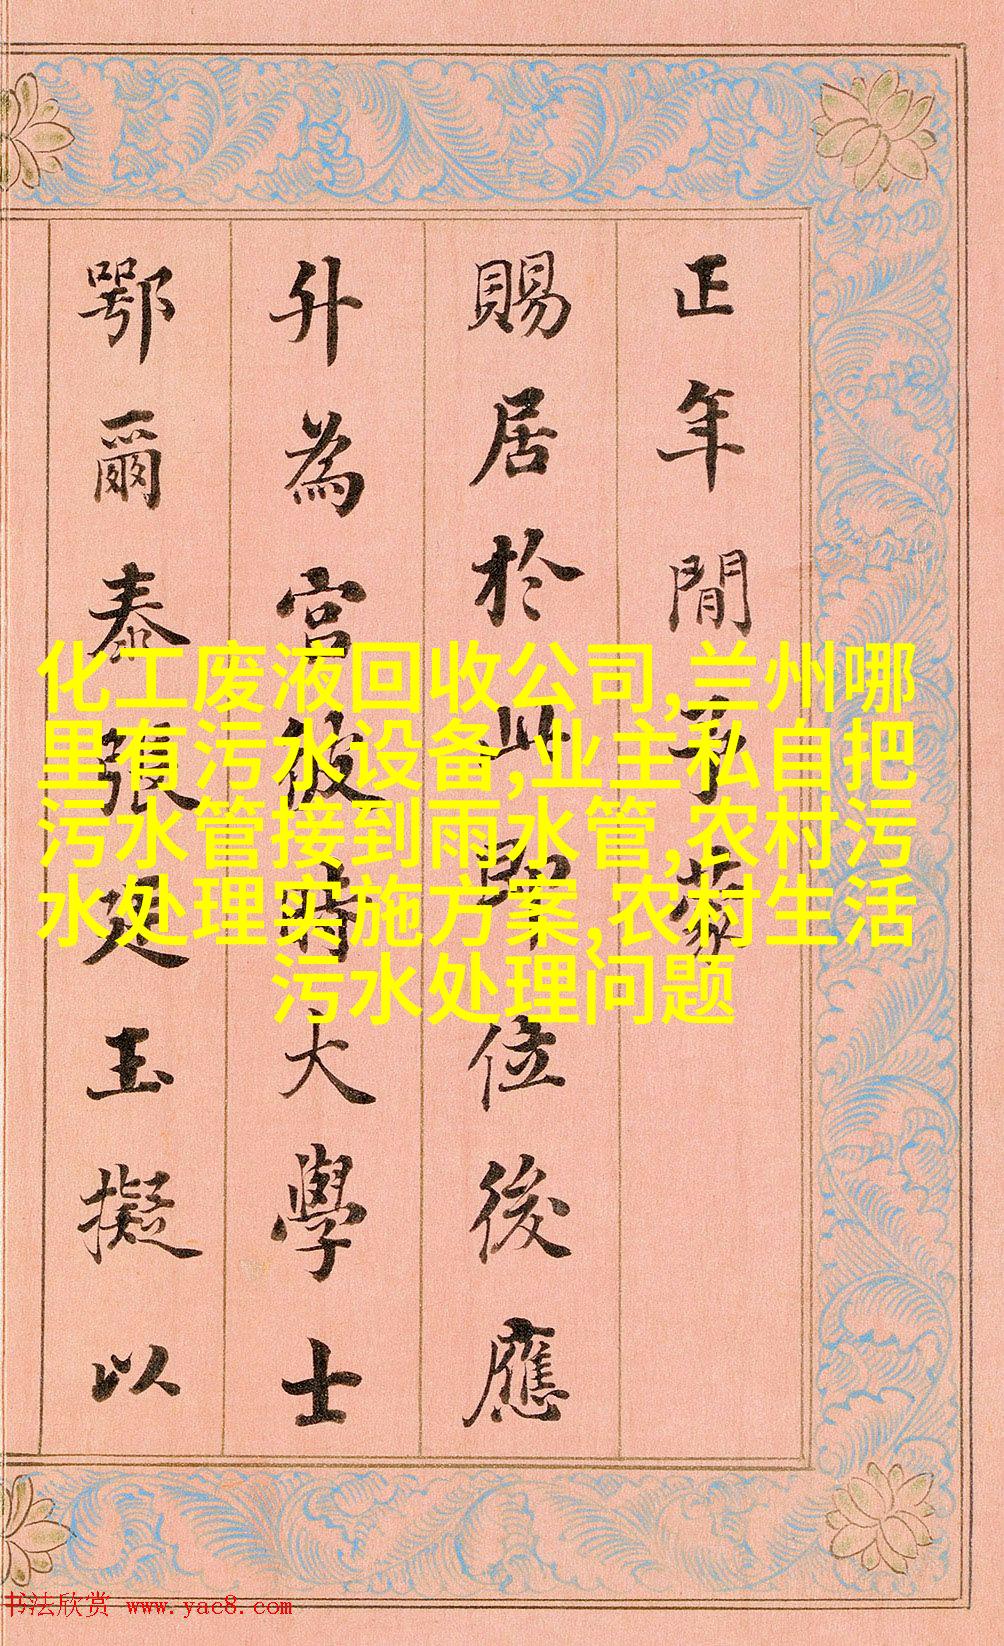 正年間予蒙
賜居於此位後應
升為宮彼時大學士
鄂爾泰張廷玉擬以
化工废液回收公司,兰州哪
里有污水设备,业主私自把
污水管接到雨水管,农村污
水处理实施方案,农村生活
污水处理问题
书法欣赏 www.yac8.com